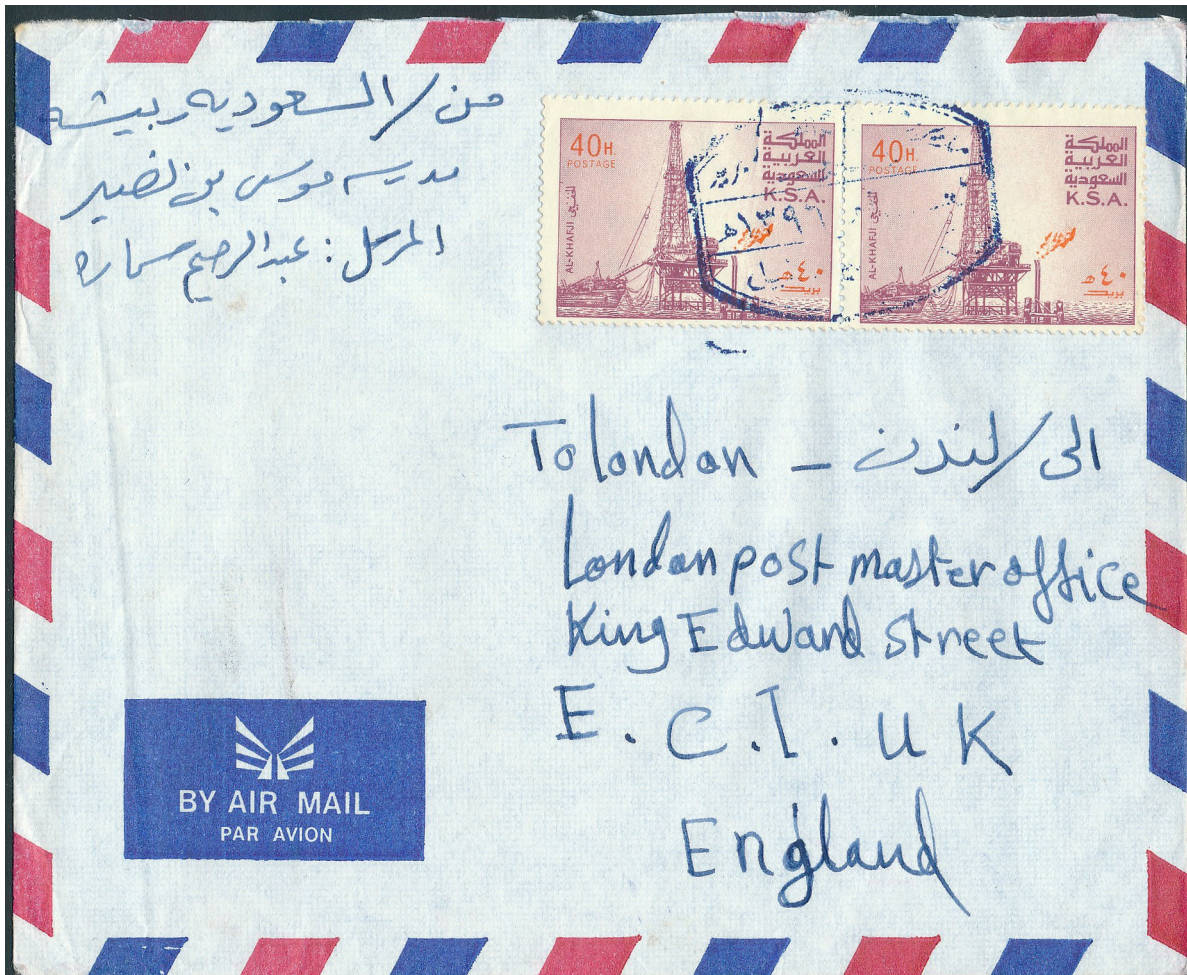 من / السعودية بيشه
مدرسه موسى بن نصير
المرسل : عبد الرحيم سماره
40 H.
POSTAGE
المملكة
العربية
السعودية
K.S.A.
الخفجي AL-KHAFJI
٤٠ هـ
بريد
40 H.
POSTAGE
المملكة
العربية
السعودية
K.S.A.
الخفجي AL-KHAFJI
٤٠ هـ
بريد
بريد
١٣٩٦هـ
To london - الى / لندن
London post master office
King Edward Street
E. C. I. U K
England
BY AIR MAIL
PAR AVION